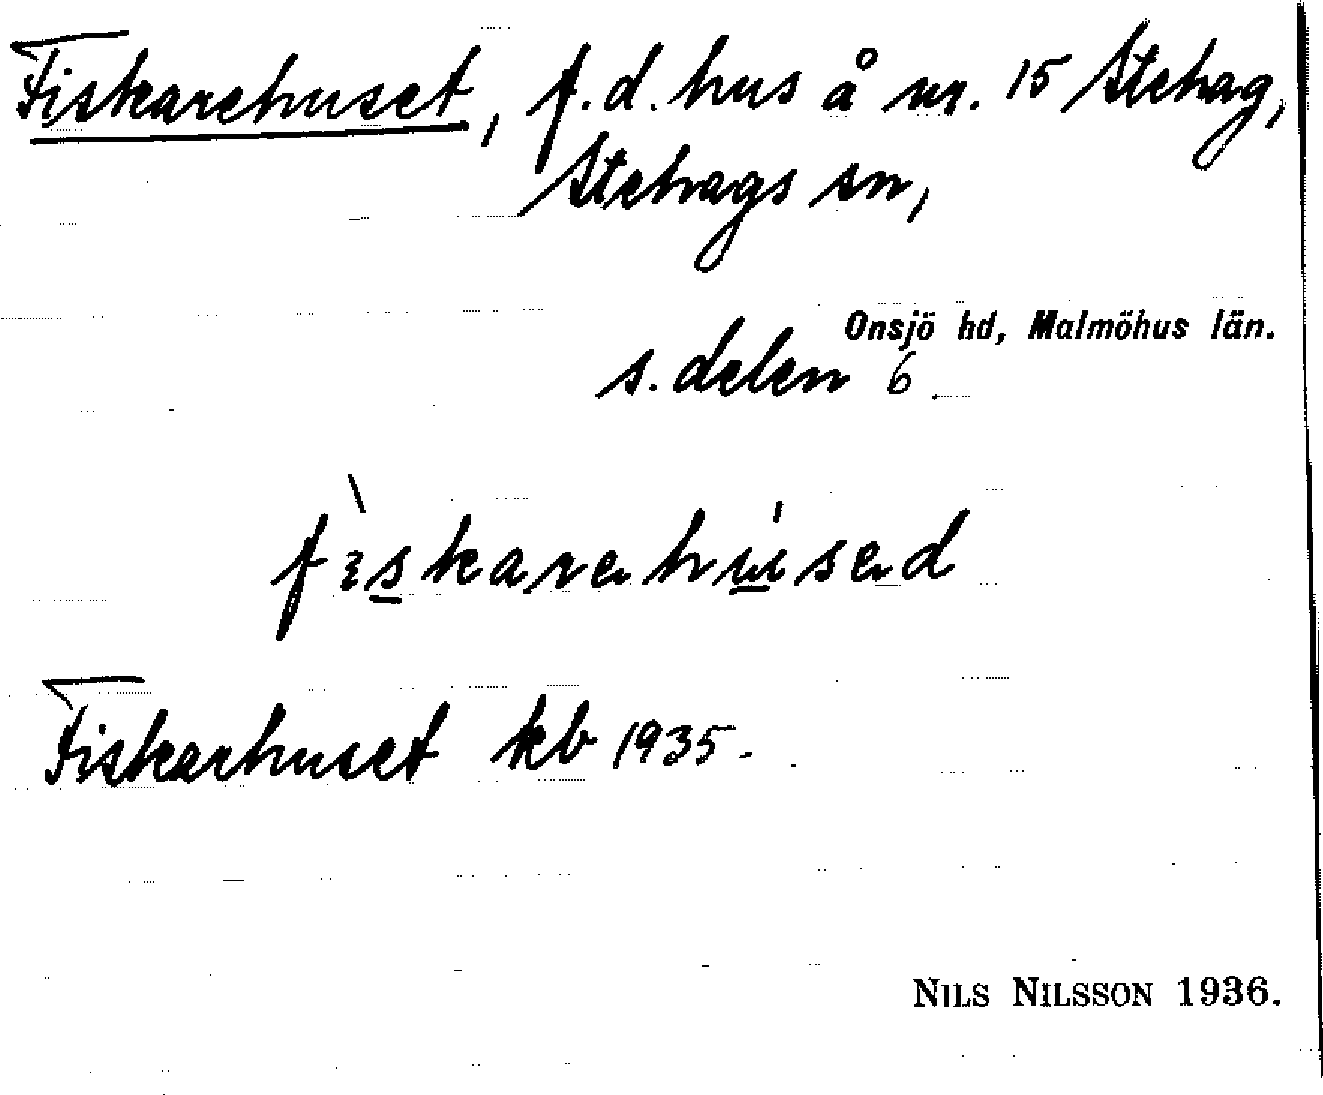 Fiskarehuset, f.d. hus å nr. 15 Stehag,
Stehags sn,
Onsjö hd, Malmöhus län.
s. delen 6
Fiskarhuset kb 1935.
NILS NILSSON 1936.